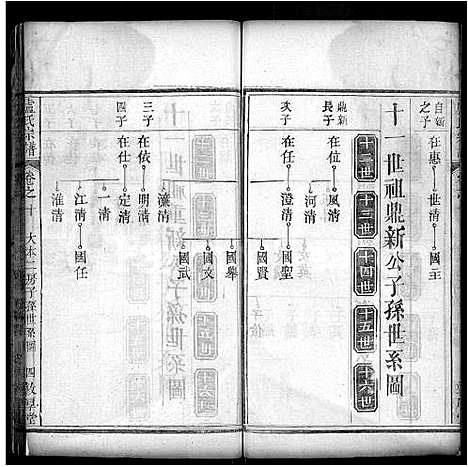 自新之子
在惠
世清
國主
十一世祖鼎新公子孫世系圖
十二世
十三世
十四世
十五世
十六世
鼎新長子
在位
風清
河清
次子
在在
澄清
國聖
國賢
國舉
國文
國武
三子
在依
明清
瀛清
四子
在仕
定清
一清
江清
國任
淮清
盧氏宗譜
卷之十
大本二房子孫世系圖
四
敦厚堂